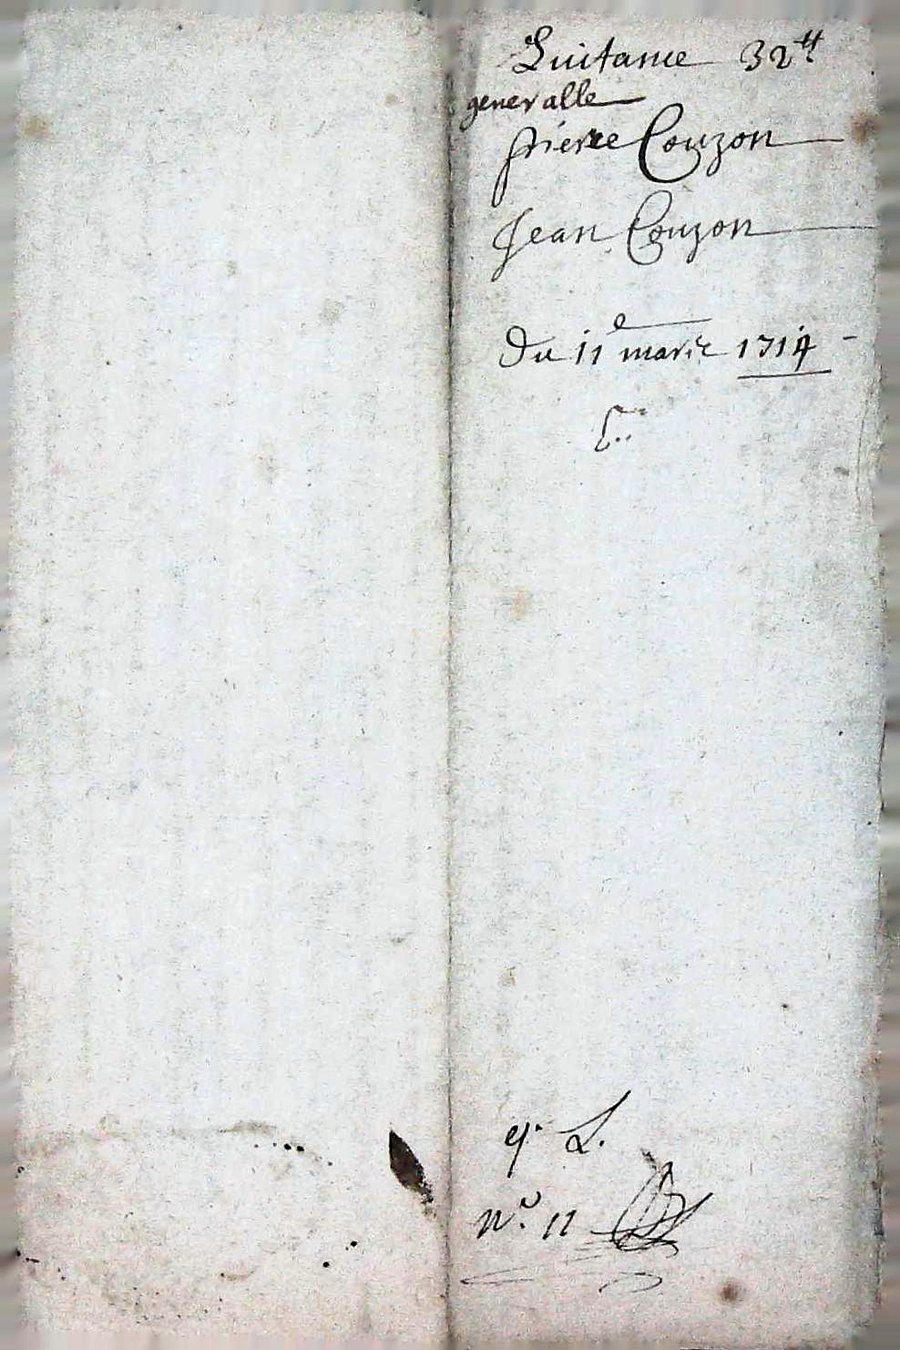 Quitance 32tt
generalle
pierre Couzon
Jean Couzon
Du 11e mars 1714
L.
n.o 11